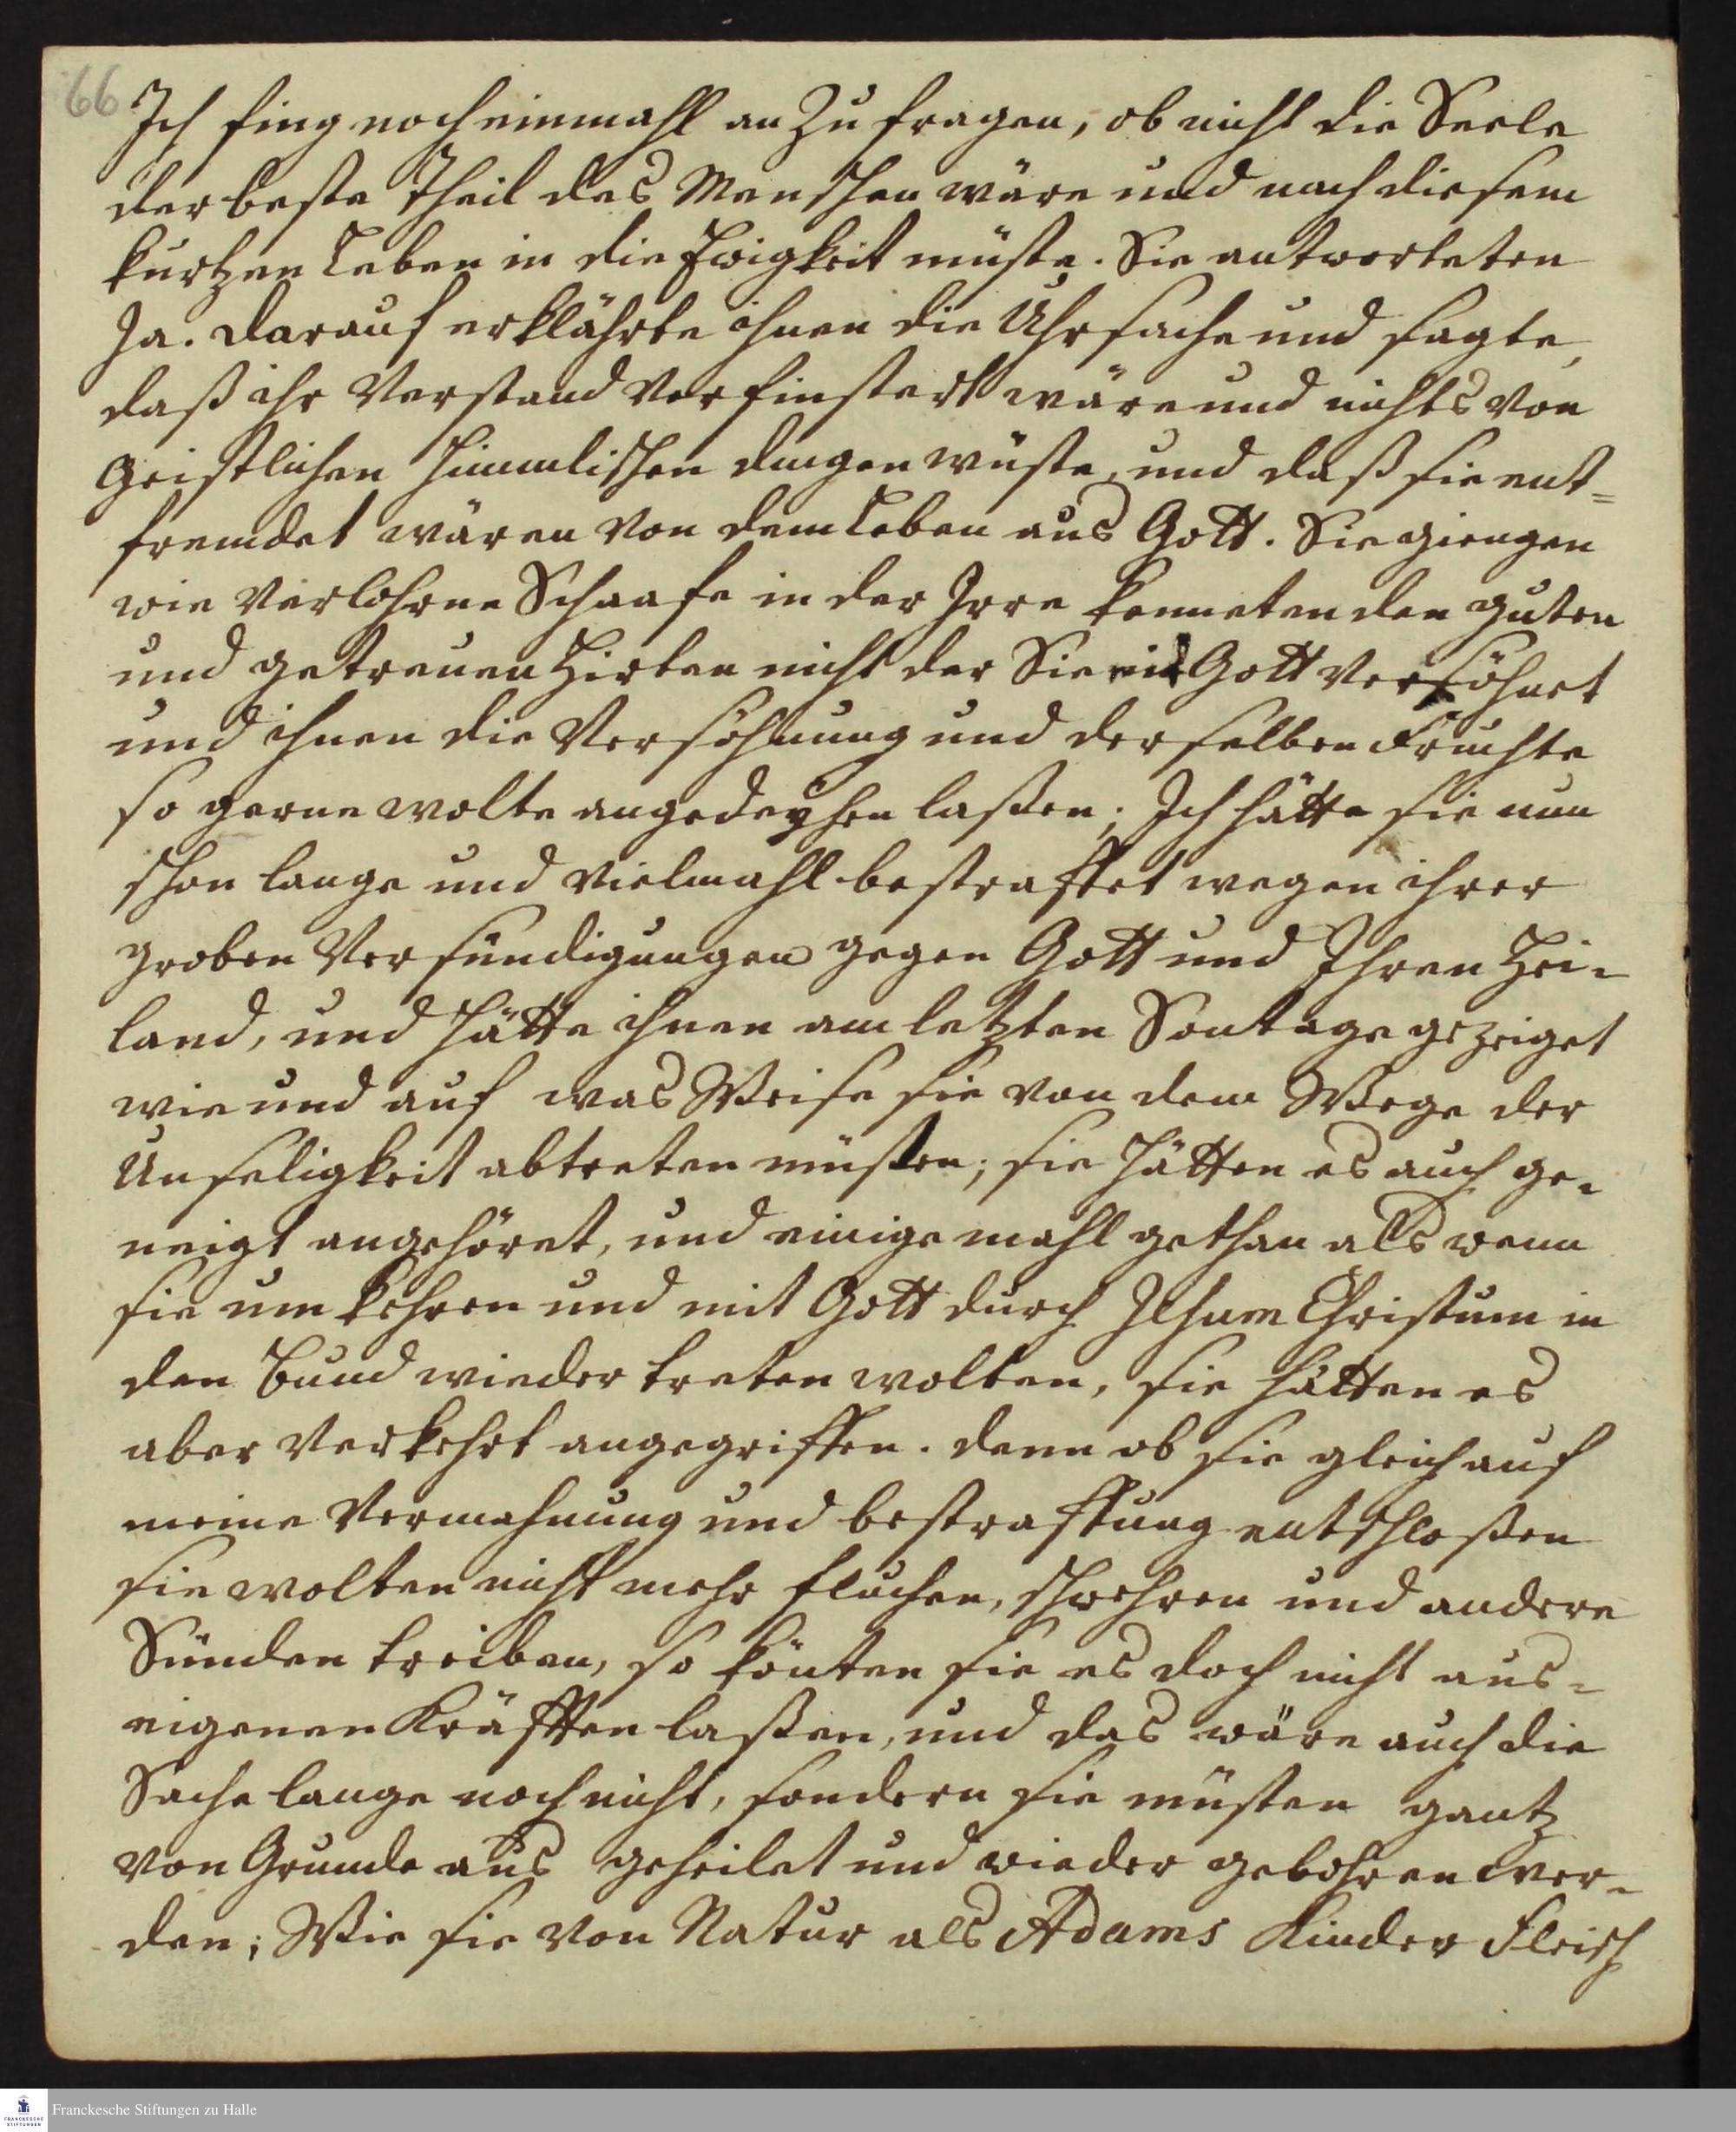 66
Ich fing noch einmahl an Zu fragen, ob nicht die Seele
der beste Theil des Menschen wäre und nach diesem
kurtzen Leben in die Ewigkeit müste. Sie antworteten
Ja. Darauf erklährte ihnen die Uhrsache und sagte,
daß ihr Verstand verfinstert wäre und nichts von
Geistlichen Himmlischen dingen wüste, und daß sie ent=
fremdet wären von dem Leben aus Gott. Sie giengen
wie verlohrne Schaafe in der Irre kenneten den guten
und getreuen Hirten nicht der Sie mit Gott versöhnet
und ihnen die Versöhnung und derselben Früchte
so gerne wolte angedeyhen laßen; Ich hätte sie nun
schon lange und vielmahl bestraffet wegen ihrer
groben Versündigungen gegen Gott und Ihren Hei-
land, und hätte ihnen am letzten Sontage gezeiget
wie und auf was Weise sie von dem Wege der
Unseligkeit abtreten müsten; sie hätten es auch ge-
neigt angehöret, und einige mahl gethan als wenn
sie um kehren und mit Gott durch JEsum Christum in
den Bund wieder treten wolten, sie hätten es
aber verkehrt angegriffen. denn ob sie gleich auf
meine Vermahnung und bestraffung entschloßen
sie wolten nicht mehr fluchen, schwehren und andere
Sünden treiben, so könten sie es doch nicht aus-
eigenen Kräfften laßen, und das wäre auch die
Sache lange noch nicht, sondern sie müsten gantz
von Grunde aus geheilet und wieder gebohren wer-
den; Wie sie von Natur als Adams Kinder Fleisch
Franckesche Stiftungen zu Halle
FRANCKESCHE
STIFTUNGEN